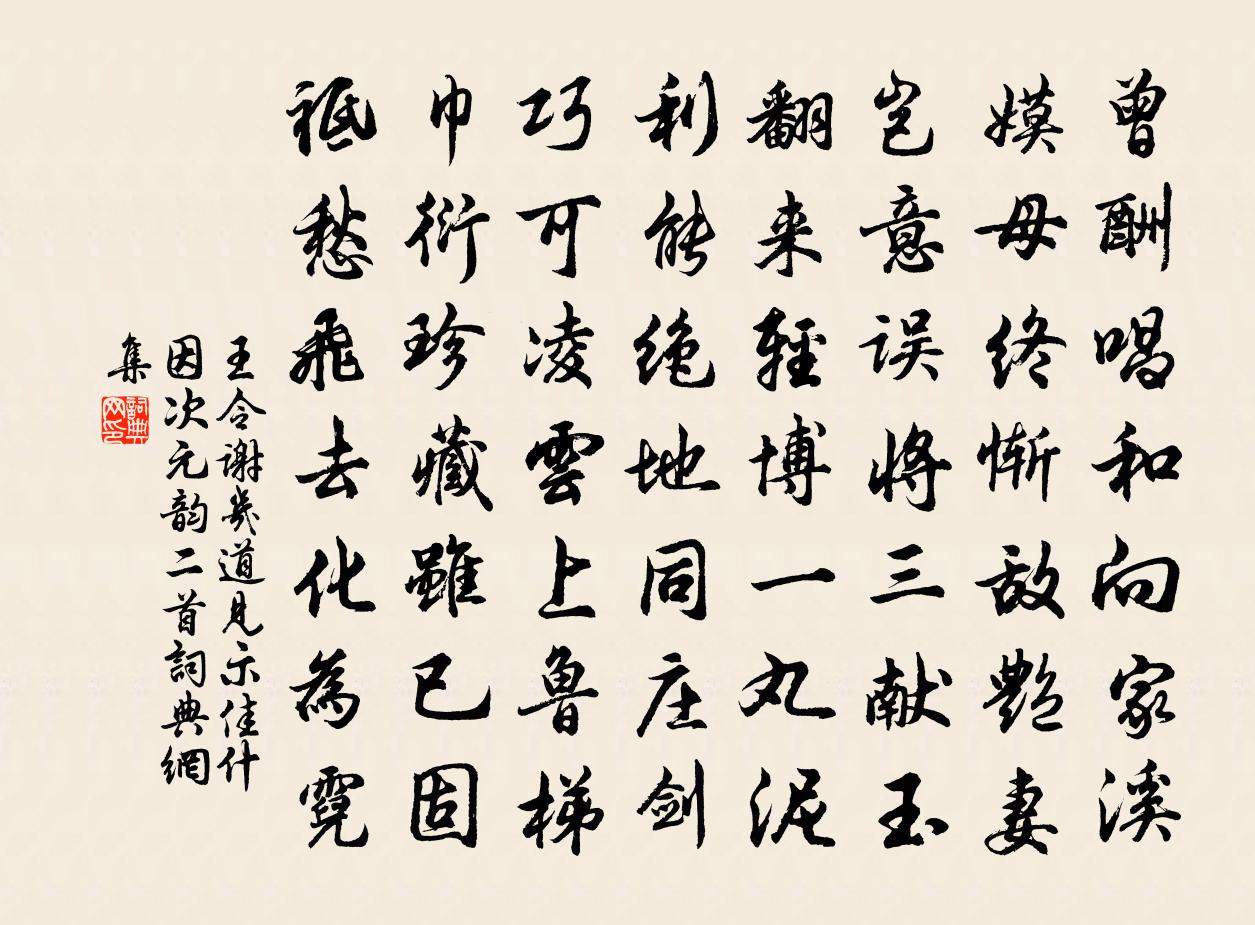 曾酬唱和向家溪
嫫母终惭敌艷妻
岂意误将三献玉
翻来轻博一丸泥
利能绝地同庄剑
巧可凌雲上鲁梯
巾衍珍藏雖已固
祗愁飛去化為霓
王令谢幾道見示佳什
因次元韵二首詞典網
集
詞典
网印